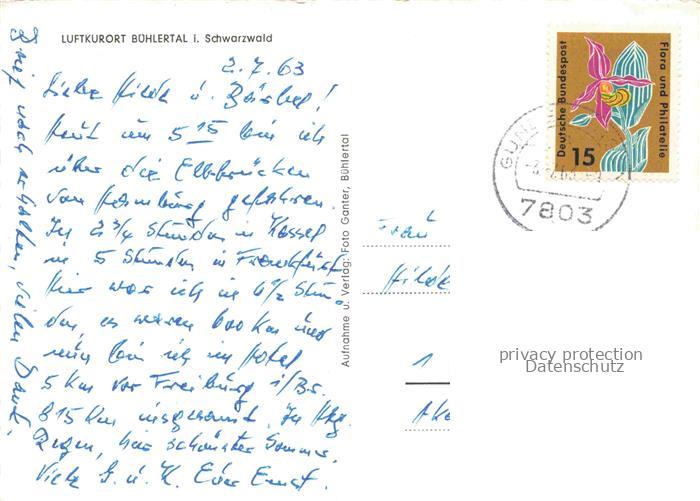 LUFTKURORT BÜHLERTAL i. Schwarzwald
2.7.63
Liebe Hilde u. Bärbel!
Heut um 5 15 bin ich
über die Elbbrücken
von Hamburg gefahren.
In 2 3/4 Stunden in Kassel
in 5 Stunden in Frankfurt
hier war ich in 6 1/2 Stun-
den, es waren 600 Km und
nun bin ich im Hotel
5 Km vor Freiburg i/Br.
815 Km insgesamt. In Hbg.
Regen, hier schönster Sommer.
Viele G. u. K. Euer Ernst.
Brief noch erhalten, vielen Dank.
Aufnahme u. Verlag: Foto Ganter, Bühlertal
Deutsche Bundespost
Flora und Philatelie
15
GUN
7803
Frau
Hilde
1
privacy protection
Datenschutz